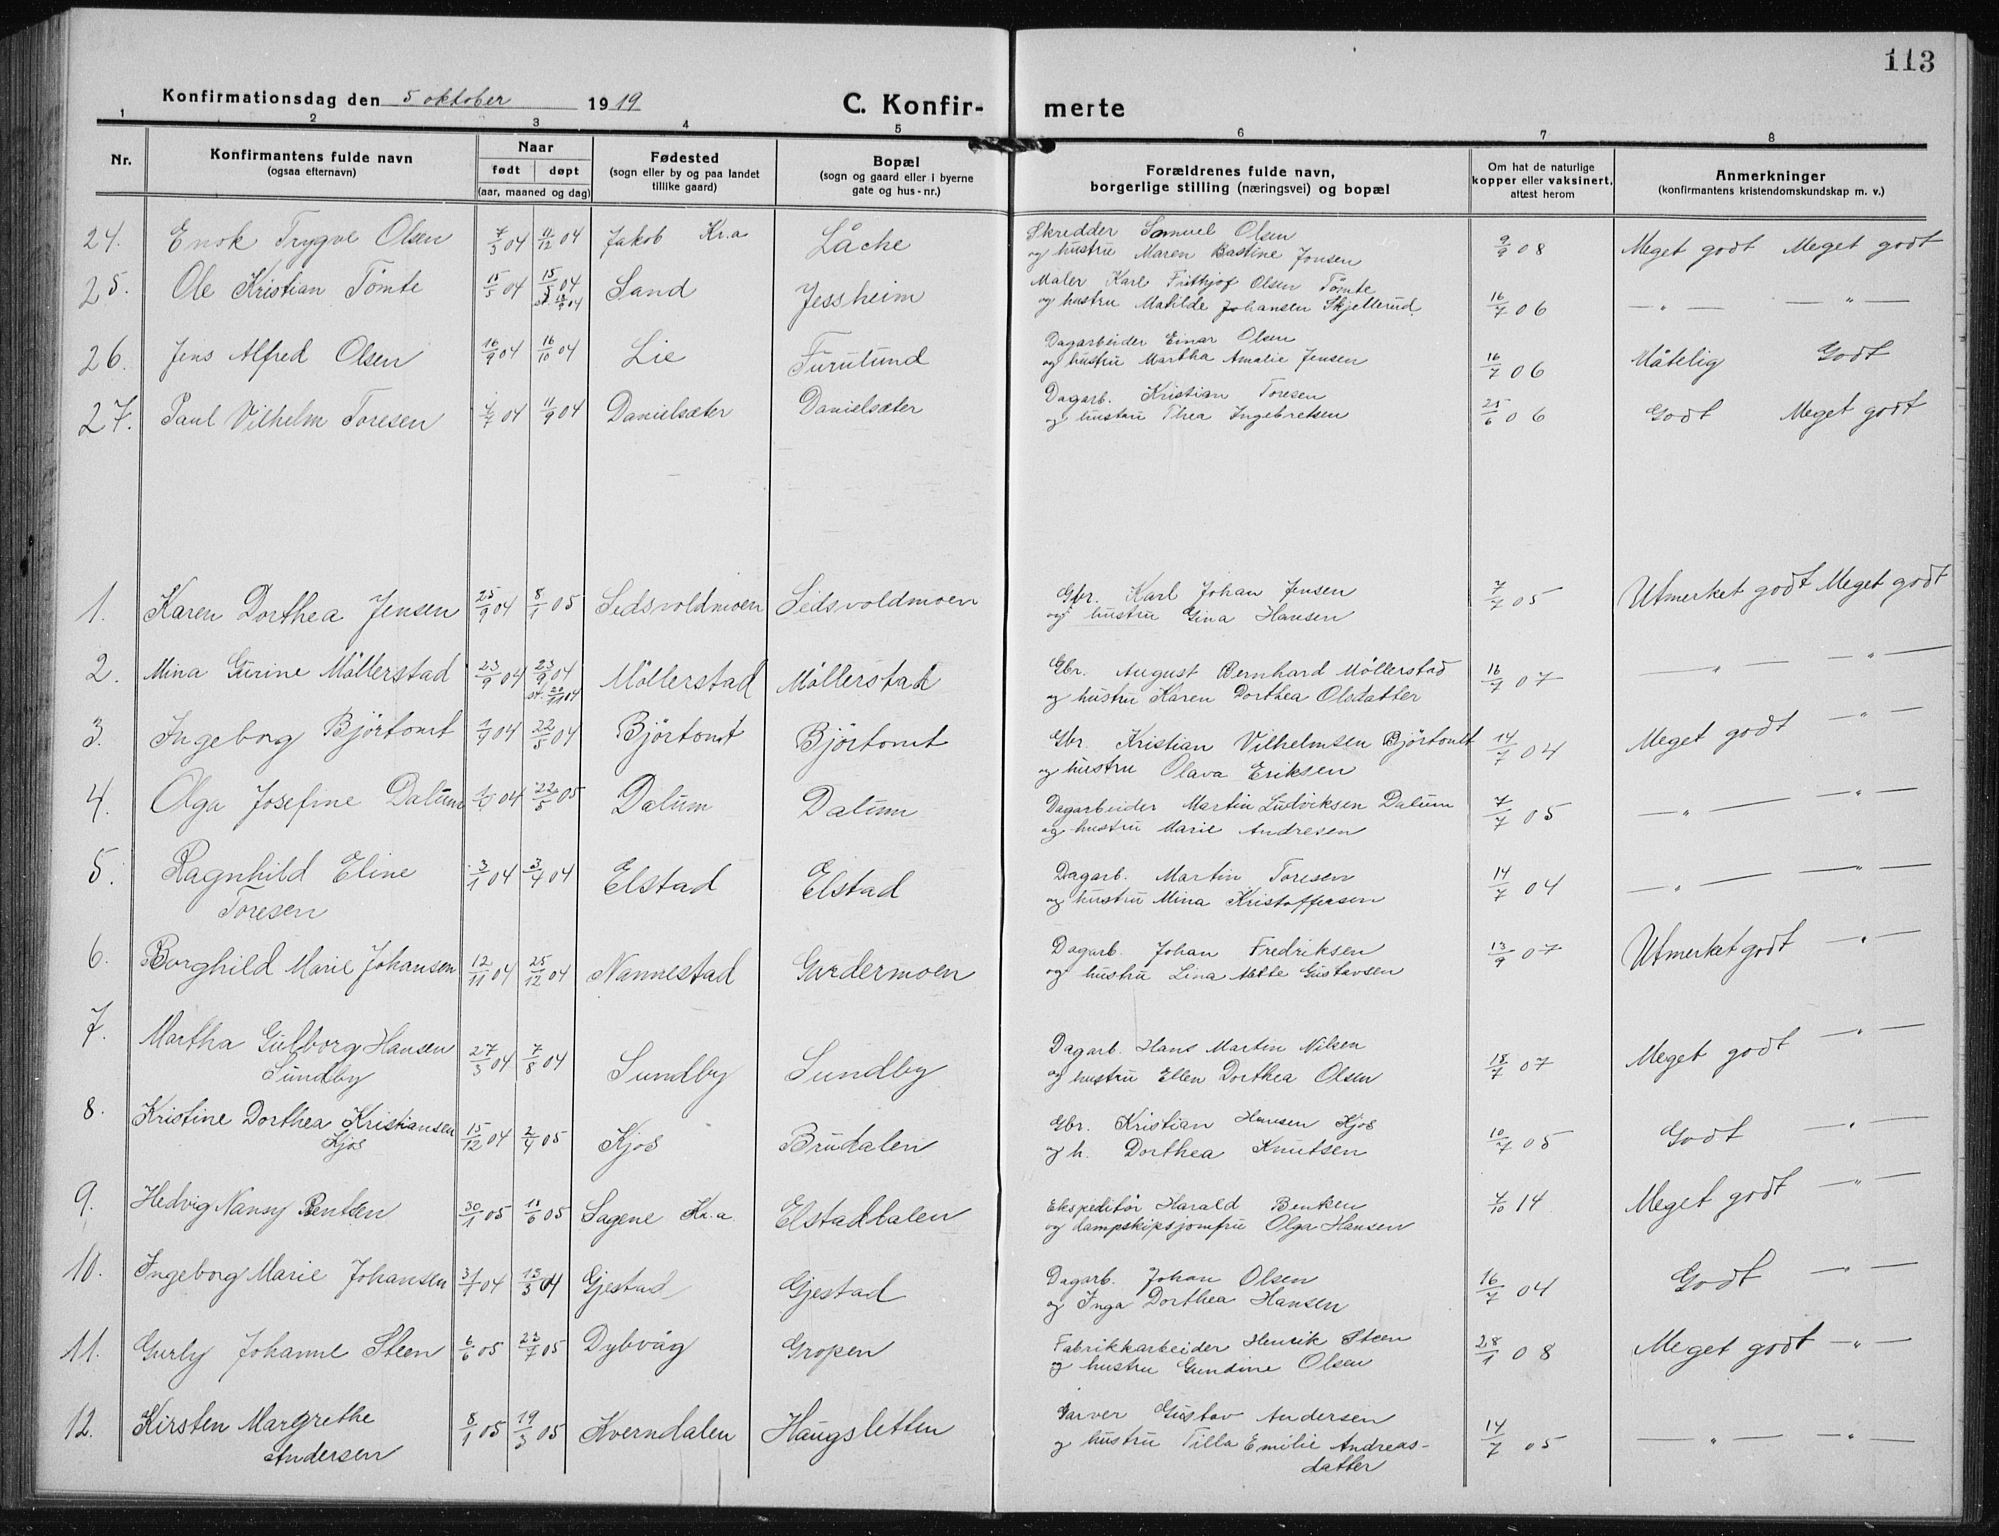 113
Konfirmationsdag den 5 oktober 1919 C. Konfir- merte
1 2 3 4 5 6 7 8
Nr. Konfirmantens fulde navn (ogsaa efternavn) Naar født døpt (aar, maaned og dag) Fødested (sogn eller by og paa landet tillike gaard) Bopæl (sogn og gaard eller i byerne gate og hus-nr.) Forældrenes fulde navn, borgerlige stilling (næringsvei) og bopæl Om hat de naturlige kopper eller vaksinert, attest herom Anmerkninger (konfirmantens kristendomskundskap m. v.)
24. Enok Trygve Olsen 7/3 04 11/12 04 Jakob Kr.a Låche Skredder Samuel Olsen 9/9 08 Meget godt Meget godt
og hustru Maren Bastine Jonsen
25. Ole Kristian Tömte 15/5 04 15/5 04 Sand Jessheim Maler Karl Frithjof Olsen Tömte 16/7 06 — " — — " —
og hustru Matilde Johansen Skjellerud
26. Jens Alfred Olsen 16/9 04 16/10 04 Lie Furulund Dagarbeider Einar Olsen 16/7 06 Måtelig Godt
og hustru Martha Amalie Jensen
27. Paul Vilhelm Toresen 4/7 04 11/9 04 Danielsæter Danielsæter Dagarb. Kristian Toresen 25/6 06 Godt Meget godt
og hustru Thea Ingebretsen
1. Karen Dorthea Jensen 25/9 04 8/1 05 Ledsvoldmoen Ledsvoldmoen Gbr. Karl Johan Jensen 7/7 05 Utmerket godt Meget godt
og hustru Gina Hansen
2. Mina Gurine Möllerstad 23/9 04 23/9 04 st. 20/11 04 Möllerstad Möllerstad Gbr. August Bernhard Möllerstad 16/7 07 — " — — " —
og hustru Karen Dorthea Olsdatter
3. Ingeborg Björtomt 1/4 04 22/5 04 Björtomt Björtomt Gbr. Kristian Vilhelmsen Björtomt 14/7 04 Meget godt — " —
og hustru Olava Eriksen
4. Olga Josefine Dalum 04 22/5 05 Dalum Dalum Dagarbeider Martin Ludviksen Dalum 7/7 05 — " — — " —
og hustru Marie Andresen
5. Ragnhild Eline 3/1 04 3/4 04 Elstad Elstad Dagarb. Martin Toresen 14/7 04 — " — — " —
Toresen og hustru Mina Kristoffersen
6. Borghild Marie Johansen 12/11 04 25/12 04 Nannestad Gardermoen Dagarb. Johan Fredriksen 13/9 07 Utmerket godt — " —
og hustru Lina Mette Gustavsen
7. Martha Gulborg Hansen 27/3 04 7/8 04 Sundby Sundby Dagarb. Hans Martin Nilsen 18/7 07 Meget godt — " —
Sundby og hustru Ellen Dorthea Olsen
8. Kristine Dorthea Kristiansen 15/12 04 2/4 05 Kjos Brudalen Gbr. Kristian Hansen Kjos 10/7 05 Godt — " —
Kjos og h. Dorthea Knutsen
9. Hedvig Nansy Bentsen 30/1 05 18/6 05 Sagene Kr.a Elstaddalen Ekspeditör Harald Benken 7/10 14 Meget godt — " —
og dampskipsjomfru Olga Hansen
10. Ingeborg Marie Johansen 31/1 04 13/3 04 Gjestad Gjestad Dagarb. Johan Olsen 16/7 04 Godt — " —
og Inga Dorthea Hansen
11. Gurly Johanne Steen 6/6 05 22/7 05 Dybvåg Gropen Fabrikkarbeider Henrik Steen 28/1 08 Meget godt — " —
og hustru Gundine Olsen
12. Kirsten Margrethe 8/1 05 19/3 05 Kverndalen Haugsletten Garver Gustav Andersen 14/7 05 — " — — " —
Andersen og hustru Tilla Emilie Andreas-
datter